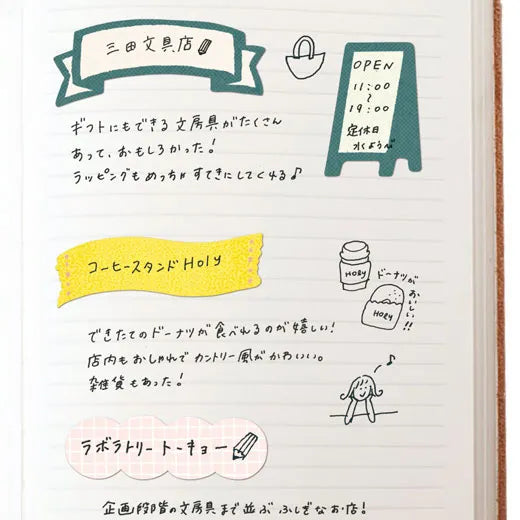 三田文具店
OPEN
11:00
〜
19:00
定休日
水ようび
ギフトにもできる文房具がたくさん
あって、おもしろかった!
ラッピングもめっちゃすてきにしてくれる♪
コーヒースタンドHoly
HOLY
ドーナツが
おいしい!!
HOLY
できたてのドーナツが食べれるのが嬉しい!
店内もおしゃれでカントリー風がかわいい。
雑貨もあった!
ラボラトリートーキョー
企画段階の文房具まで並ぶふしぎなお店!